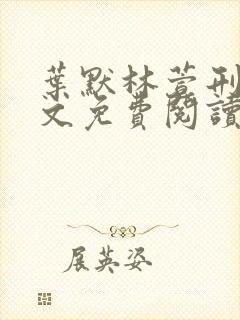 葉默林萱刑
文免費閱讀
展英姿